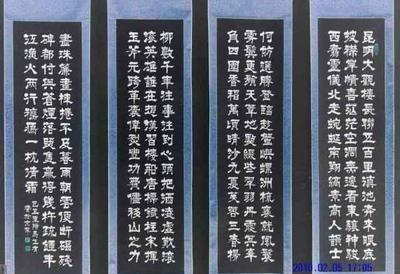 昆明大觀樓長聯五百里滇池奔來眼底
披襟岸幘喜茫茫空闊無邊看東驤神駿
西翥靈儀北走蜿蜒南翔縞素高人韻士
何妨選勝登臨趁蟹嶼螺洲梳裹就風鬟
霧鬢更蘋天葦地點綴些翠羽丹霞莫孤
負四圍香稻萬頃晴沙九夏芙蓉三春楊
柳數千年往事注到心頭把酒凌虛歎滾
滾英雄誰在想漢習樓船唐標鐵柱宋揮
玉斧元跨革囊偉烈豐功費盡移山心力
盡珠簾畫棟捲不及暮雨朝雲便斷碣殘
碑都付與蒼煙落照只贏得幾杵疏鐘半
江漁火兩行秋雁一枕清霜
2010.02.05 17:05